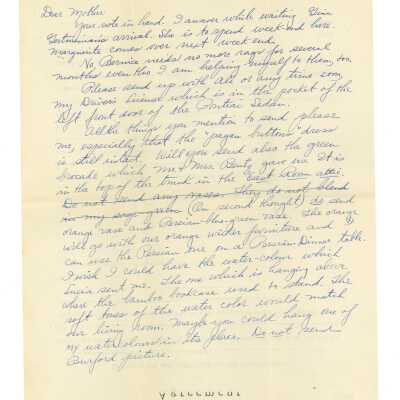 Dear Mother
Your note in hand. I answer while waiting
arrival. She is to spend week-end here.
Marguerite comes over next week end.
No, Bernice needs no more rags for several
months even tho I am helping myself to them, too.
Please send up with Al or any time soon,
my Drivers License which is in the pocket of the
left front door of the Pontiac Sedan.
All the things you mention to send please
me, especially that the "pagan buttons" dress
is still intact. Will you send also the green
brocade which Mr & Mrs gave me. It is
in the top of the trunk in the East Room attic.
Do not send any vases. They do not blend
in my
(On second thought) Do send
orange vase and Persian blue-green vase. The orange
will go with our orange wicker furniture and I
can use the Persian one on a Persian Dinner table.
I wish I could have the water-colour which
sent me. The one which is hanging above
where the bamboo bookcase used to stand. The
soft tones of the water color would match
our living room. Maybe you could hang one of
my watercolours in its place. Do not send
Burford picture.